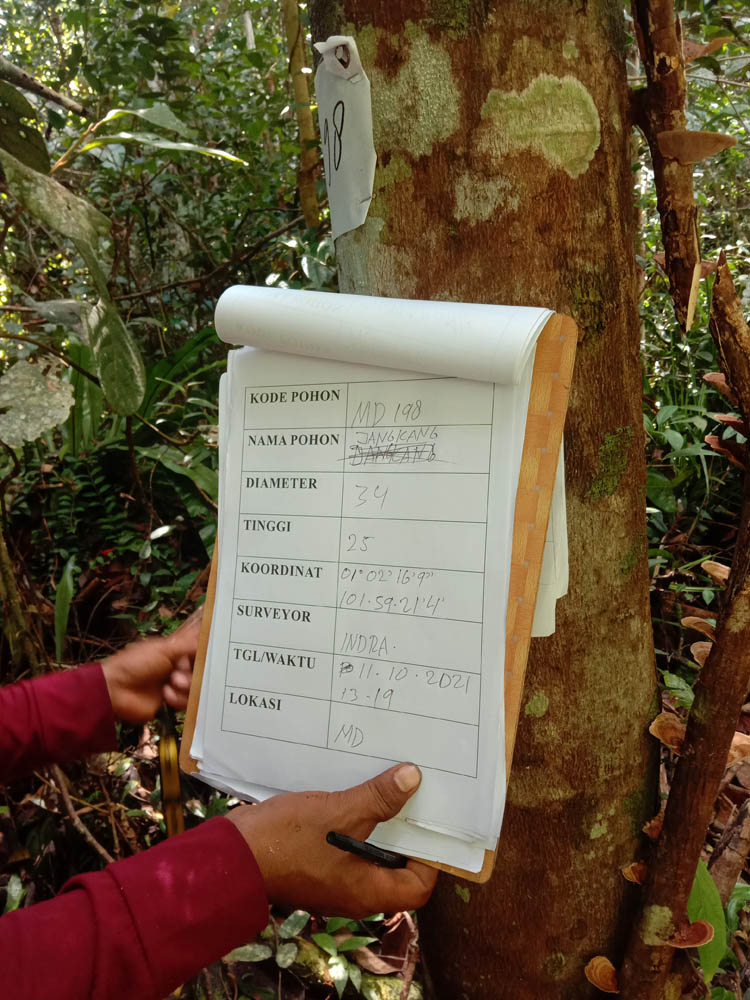 98
KODE POHON MD 198
NAMA POHON JANGKANG
DIAMETER 34
TINGGI 25
KOORDINAT 01°02'16'9"
101.59.21'4'
SURVEYOR INDRA.
TGL/WAKTU 11.10.2021
13.19
LOKASI MD